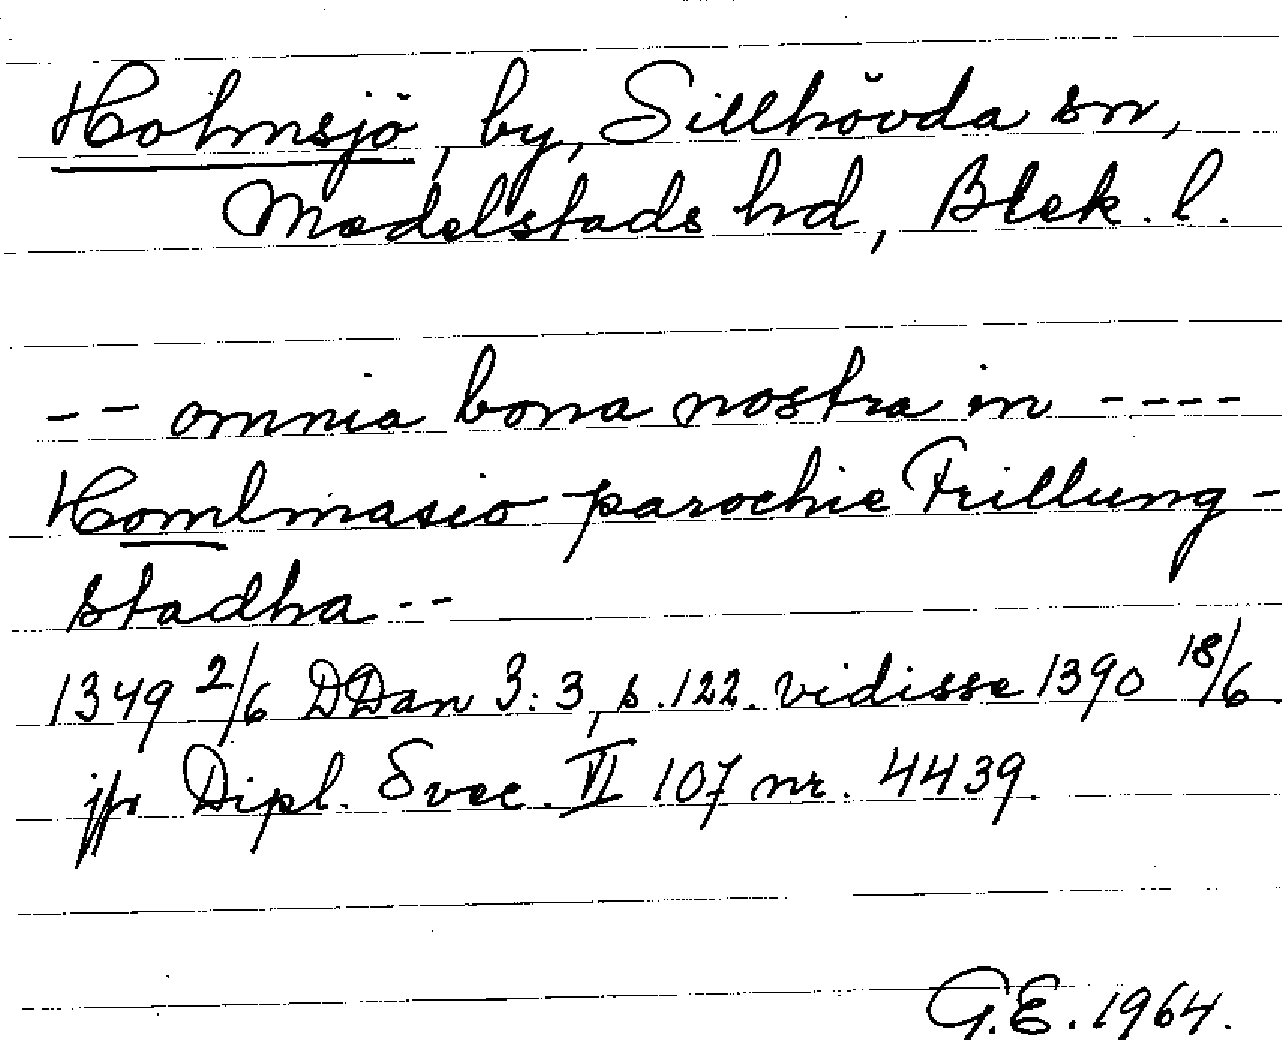 Holmsjö, by, Sillhövda sn,
Medelstads hd, Blek. l.
-- omnia bona nostra in ----
Homlmasio parochie Frillung-
stadha --
1349 2/6 DDan 3:3, s. 122. vidisse 1390 18/6
jfr Dipl. Svec. VI 107 nr. 4439.
G.E. 1964.